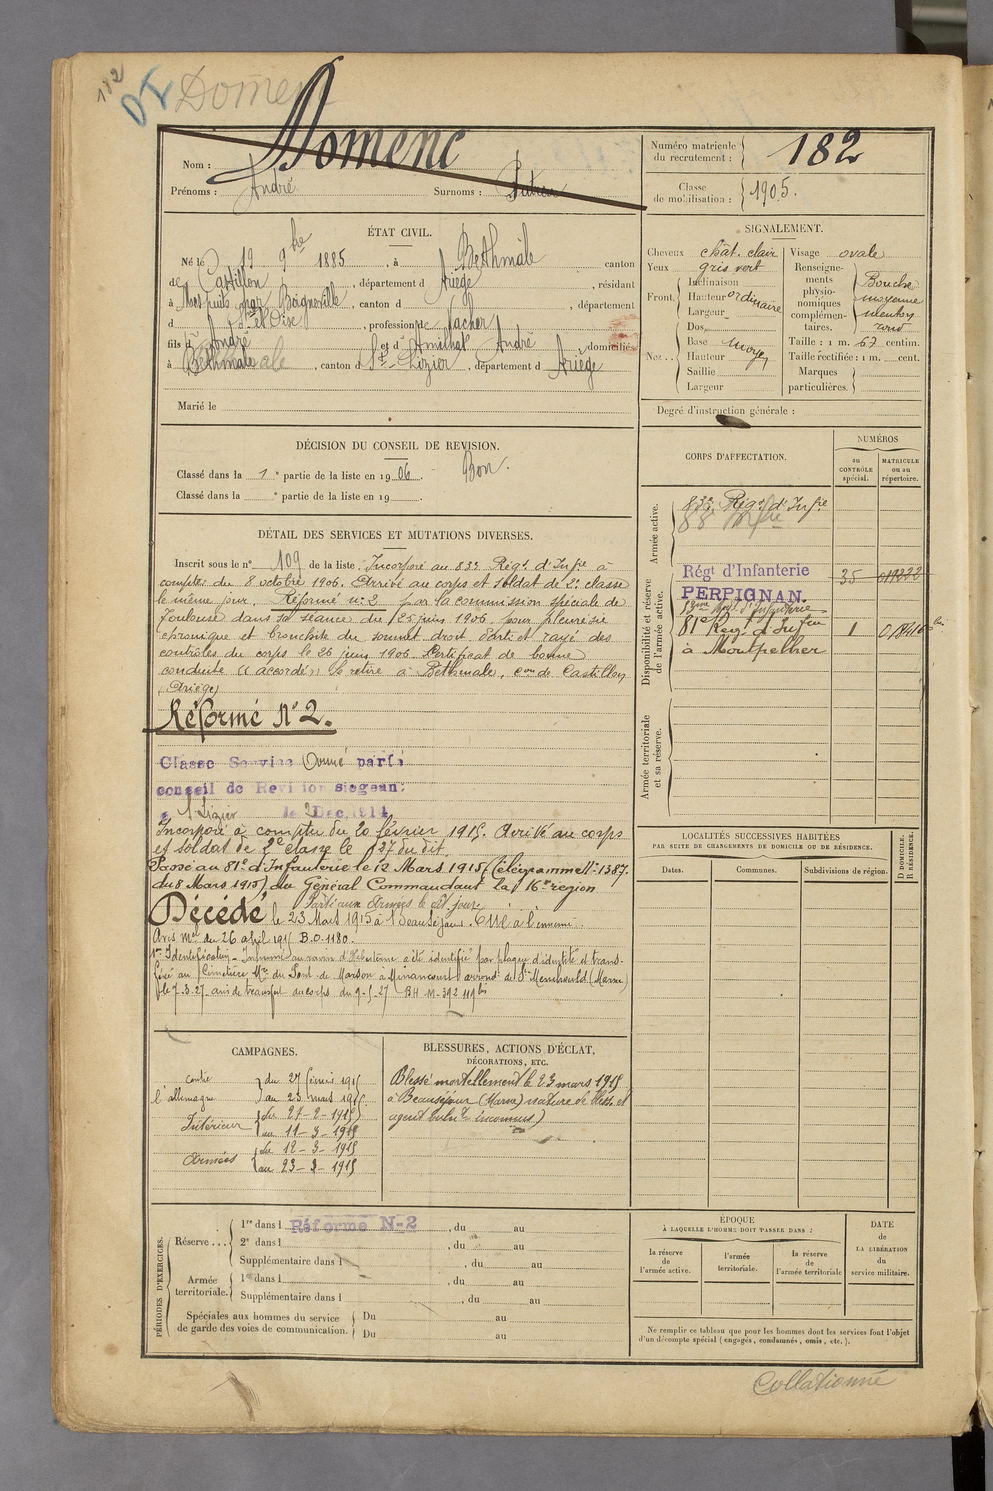 182
DI Domenc
Nom : Domenc
Prénoms : André Surnoms :
Numéro matricule du recrutement : 182
Classe de mobilisation : 1905.
ÉTAT CIVIL.
Né le 19 9bre 1885, à Bethmale canton
de Castillon, département d Ariège, résidant
à par, canton d, département
d S. et Oise, profession de Vacher
fils d' André et d' Amilhat André domiciliés
à Bethmale, canton d St-Lizier, département d Ariège
Marié le
SIGNALEMENT.
Cheveux chât. clair
Yeux gris vert
Front. Inclinaison
Hauteur ordinaire
Largeur
Nez... Dos
Base moyen
Hauteur
Saillie
Largeur
Visage ovale
Renseignements physionomiques complémentaires. Bouche moyenne menton rond
Taille : 1 m. 67 centim.
Taille rectifiée : 1 m. cent.
Marques particulières.
Degré d'instruction générale :
DÉCISION DU CONSEIL DE REVISION.
Classé dans la 1e partie de la liste en 1906. Bon.
Classé dans la e partie de la liste en 19 .
DÉTAIL DES SERVICES ET MUTATIONS DIVERSES.
Inscrit sous le n° 109 de la liste. Incorporé au 83e Régt d'Infie à
compter du 8 octobre 1906. Arrivé au corps et soldat de 2e classe
le même jour. Réformé n° 2 par la commission spéciale de
Toulouse dans sa séance du 25 juin 190 pour pleurésie
chronique et bronchite du sommet droit. Parti et rayé des
contrôles du corps le 26 juin 190 . Certificat de bonne
conduite "accordé" Se retire à Bethmale, con de Castillon
(Ariège)
Réformé N° 2.
Classé Service Armé par le
conseil de Revision siégeant
à St Lizier le 2 Dec. 1914
Incorporé à compter du 20 février 1915. Arrivé au corps
et soldat de 2e classe le 27 du dit.
Passé au 81e d'Infanterie le 12 Mars 1915 (télégramme N° 1387
du 8 Mars 1915) du Général Commandant la 16e région
Parti aux Armées le dit jour
Décédé le 23 Mars 1915 à Beauséjour. Tué à l'ennemi.
Avis Mel du 26 avril 1915 B.O. 1180.
Identification - Inhumé au ravin d'Hébuterne a été identifié par plaque d'identité et trans-
féré au Cimetière Mre du Pont de Marson à Minaucourt arrond. de Ste Menehould (Marne)
le 7.3.27. avis de transfert du corps du 9-5-27
CORPS D'AFFECTATION.
NUMÉROS
au CONTRÔLE spécial.
MATRICULE ou au répertoire.
Armée active.
83e Régt d'Infie
88e Infie
Disponibilité et réserve de l'armée active.
Régt d'Infanterie 35
PERPIGNAN.
81e Régt d'Infrie 1
à Montpellier
Armée territoriale et sa réserve.
LOCALITÉS SUCCESSIVES HABITÉES
PAR SUITE DE CHANGEMENTS DE DOMICILE OU DE RÉSIDENCE.
Dates.
Communes.
Subdivisions de région.
D DOMICILE. R RÉSIDENCE.
CAMPAGNES.
contre l'allemagne du 27 février 1915
au 23 mars 1915
Intérieur du 27-2-1915
au 11-3-1915
Armées du 12-3-1915
au 23-3-1915
BLESSURES, ACTIONS D'ÉCLAT,
DÉCORATIONS, ETC.
Blessé mortellement le 23 mars 1915
à Beauséjour (Marne) nature de bless. et
agent vulnt inconnus)
PÉRIODES D'EXERCICES.
Réserve ...
1re dans l Réforme N-2, du au
2e dans l , du au
Supplémentaire dans l , du au
Armée territoriale.
1re dans l , du au
Supplémentaire dans l , du au
Spéciales aux hommes du service de garde des voies de communication.
Du au
Du au
ÉPOQUE
À LAQUELLE L'HOMME DOIT PASSER DANS :
la réserve de l'armée active.
l'armée territoriale.
la réserve de l'armée territoriale
DATE de LA LIBÉRATION du service militaire.
Ne remplir ce tableau que pour les hommes dont les services font l'objet
d'un décompte spécial (engagés, condamnés, omis, etc.).
Collationné